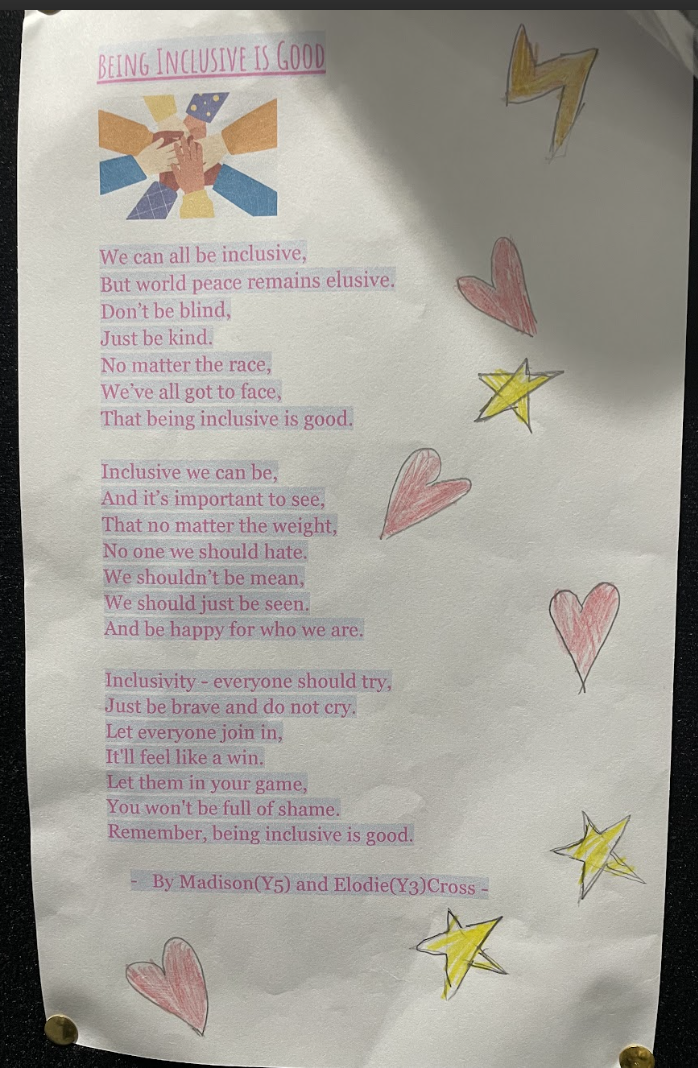 Being Inclusive is Good
We can all be inclusive,
But world peace remains elusive.
Don't be blind,
Just be kind.
No matter the race,
We've all got to face,
That being inclusive is good.
Inclusive we can be,
And it's important to see,
That no matter the weight,
No one we should hate.
We shouldn't be mean,
We should just be seen.
And be happy for who we are.
Inclusivity - everyone should try,
Just be brave and do not cry.
Let everyone join in,
It'll feel like a win.
Let them in your game,
You won't be full of shame.
Remember, being inclusive is good.
- By Madison(Y5) and Elodie(Y3)Cross -